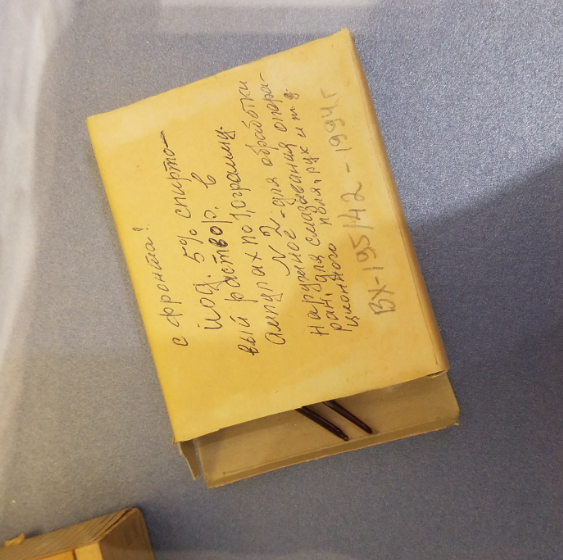 с фронта!
Иод. 5% спирто-
вый раствор. в
ампулах по 1,0 грамму.
N 2 - для обработки
наружное
ран, для смазывания опера-
ционного поля, рук и т д
ВХ-195/42 - 1994 г